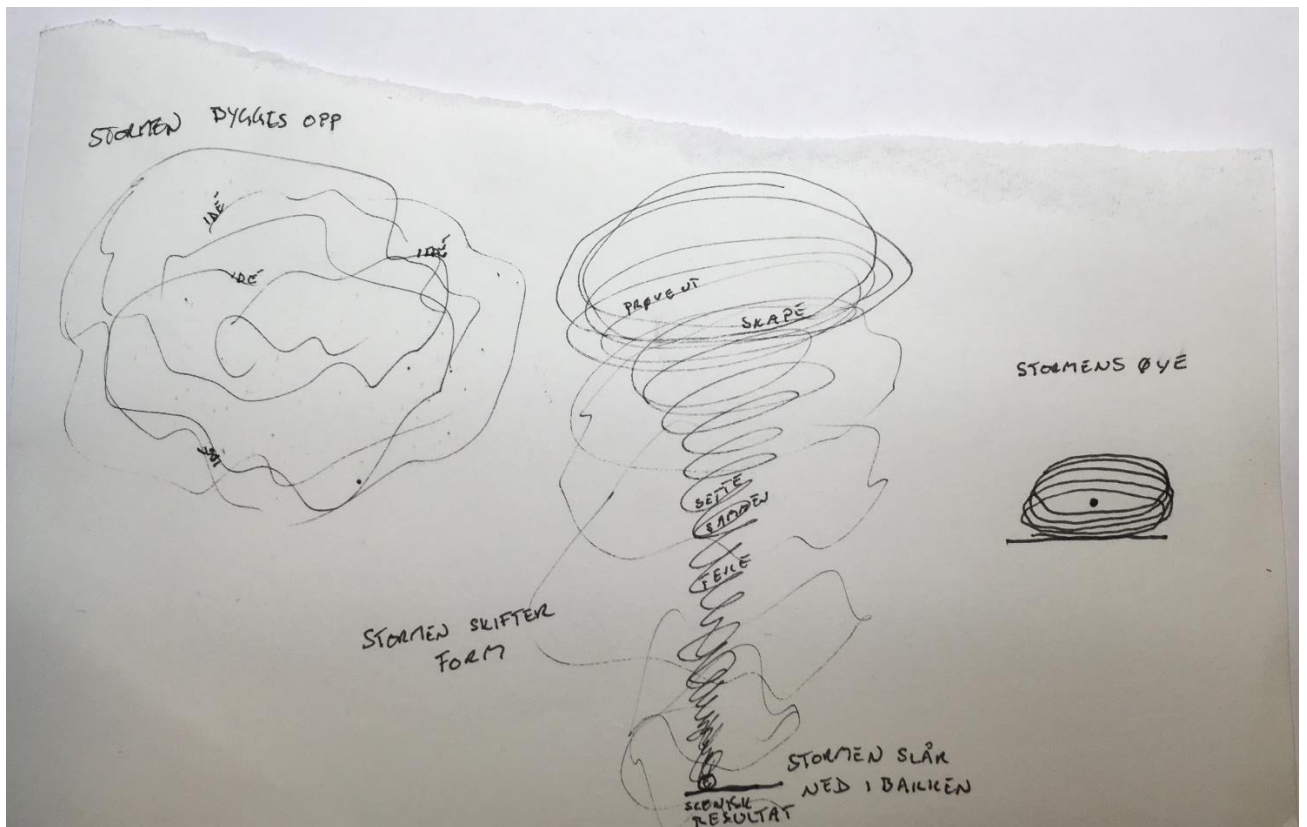 STORMEN BYGGES OPP
IDÉ
IDÉ
IDÉ
IDÉ
PRØVE UT
SKAPE
SETTE
SAMMEN
STORMENS ØYE
STORMEN SKIFTER
FORM
STORMEN SLÅR
NED I BAKKEN
SCENISK
RESULTAT